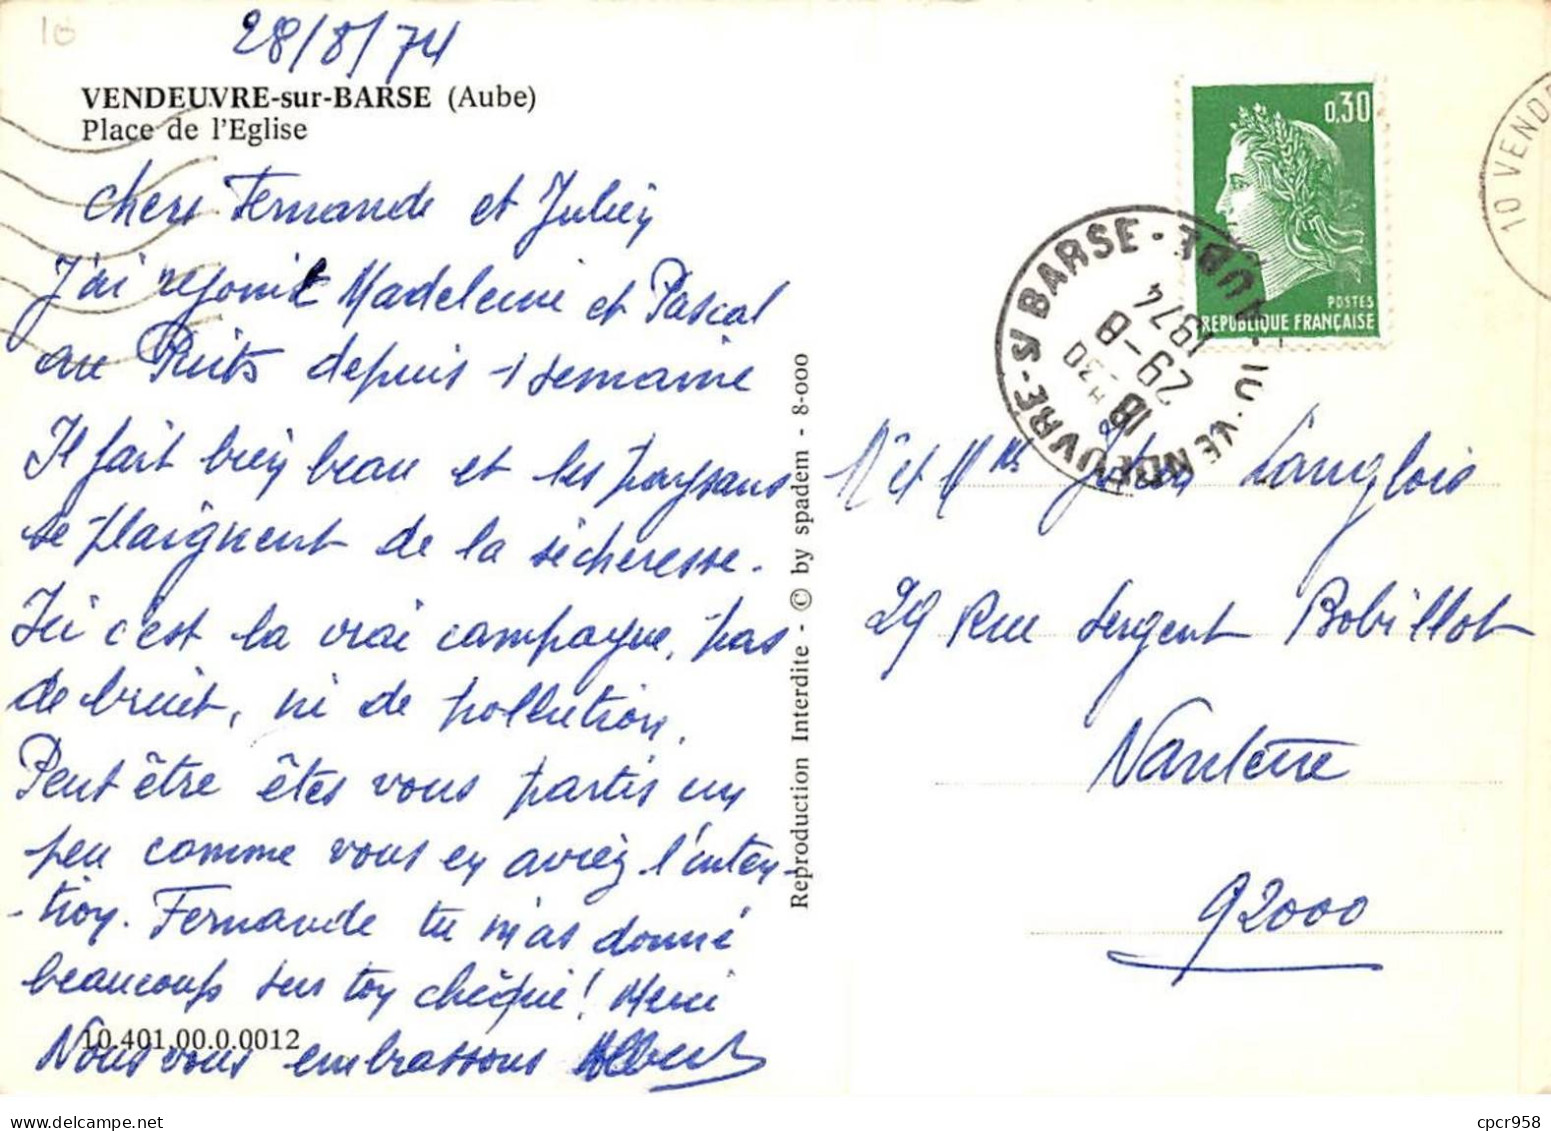 10
28/8/74
VENDEUVRE-sur-BARSE (Aube)
Place de l'Eglise
Chers Fernande et Julien
J'ai rejoint Madeleine et Pascal
au Puits depuis 1 semaine
Il fait bien beau et les paysans
se plaignent de la sécheresse.
Ici c'est la vrai campagne, pas
de bruit, ni de pollution.
Peut être êtes vous partis un
peu comme vous en aviez l'inten-
-tion. Fernande tu m'as donné
beaucoup sur ton chèque! Merci
10.401.00.0.0012
Nous vous embrassons Albert
Reproduction Interdite - © by spadem - 8-000
0,30
POSTES
REPUBLIQUE FRANÇAISE
10 VENDEUVRE-S/BARSE - AUBE
18 H30
29-8
1974
10 VENDE
Mr et Mme Langlois
29 Rue Sergent Bobillot
Nanterre
92000
cpcr958